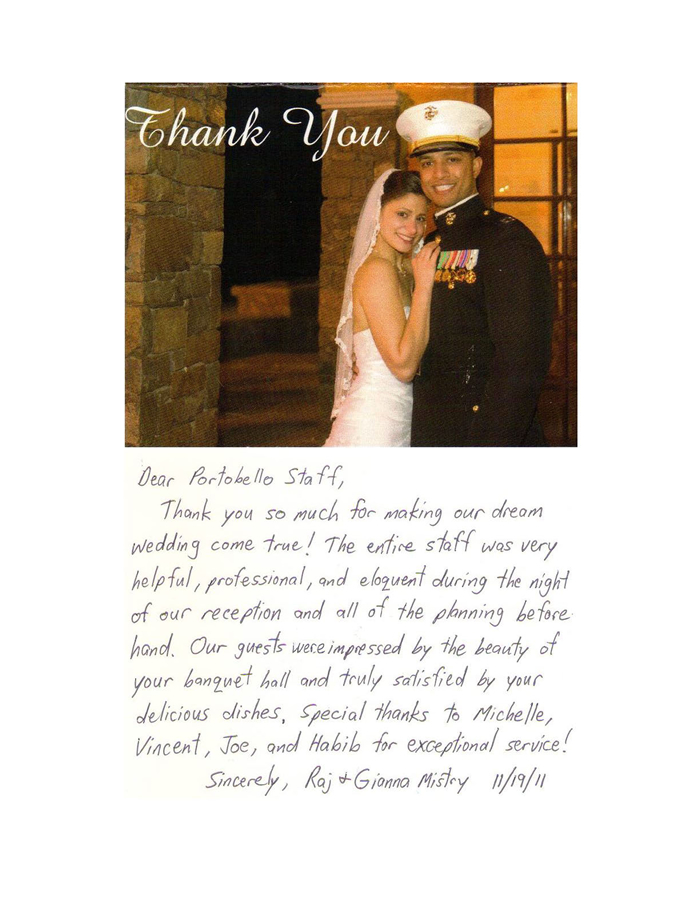 Thank You
Dear Portobello Staff,
Thank you so much for making our dream
wedding come true! The entire staff was very
helpful, professional, and eloquent during the night
of our reception and all of the planning before
hand. Our guests were impressed by the beauty of
your banquet hall and truly satisfied by your
delicious dishes. Special thanks to Michelle,
Vincent, Joe, and Habib for exceptional service!
Sincerely, Raj + Gianna Mistry 11/19/11